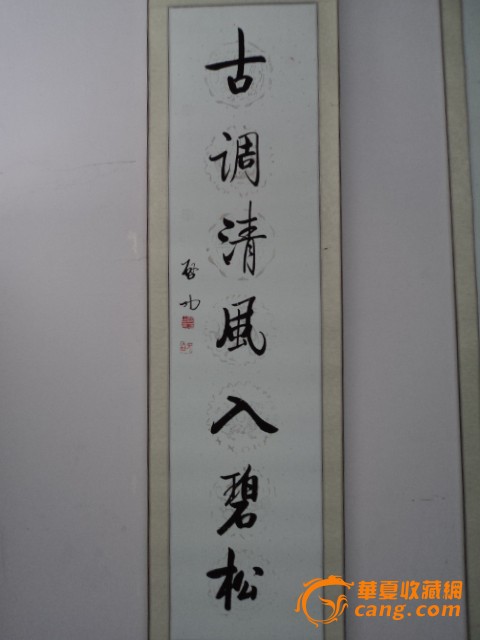 古调清風入碧松
啟功
華夏收藏網
cang.com